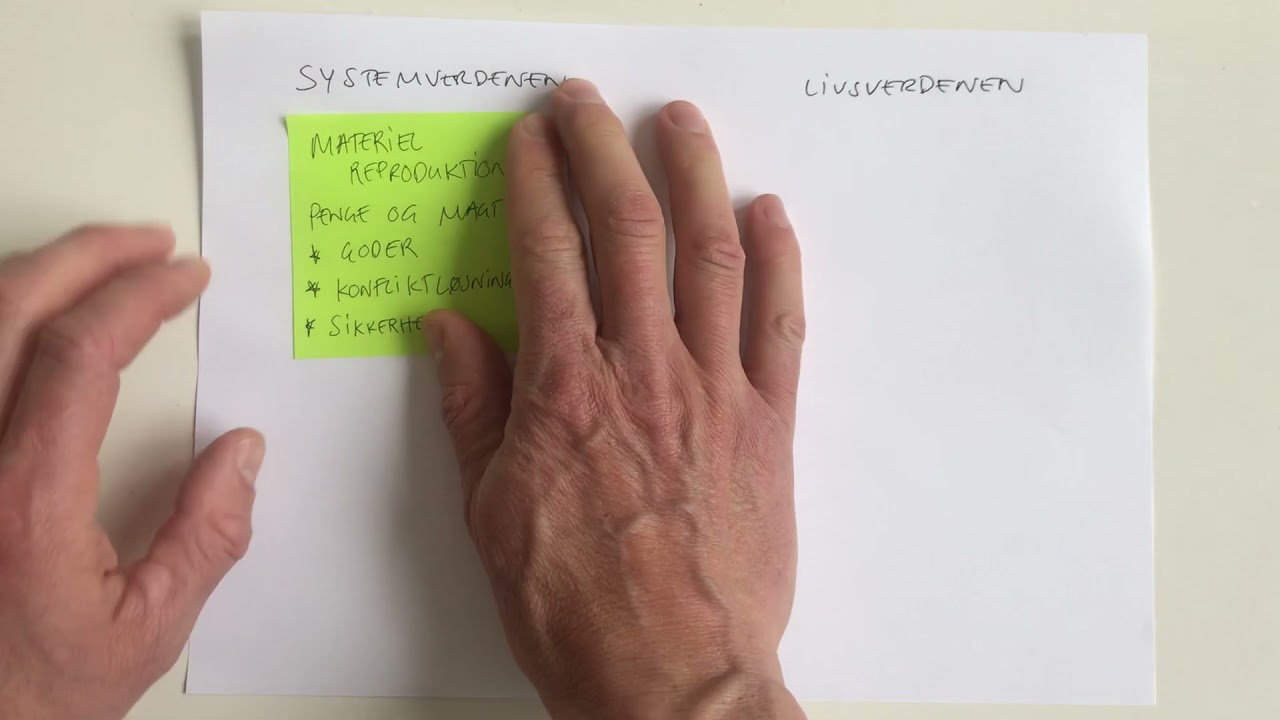 SYSTEMVERDENEN
LIVSVERDENEN
MATERIEL
REPRODUKTION
PENGE OG MAGT
* GODER
* KONFLIKTLØSNING
* SIKKERHE